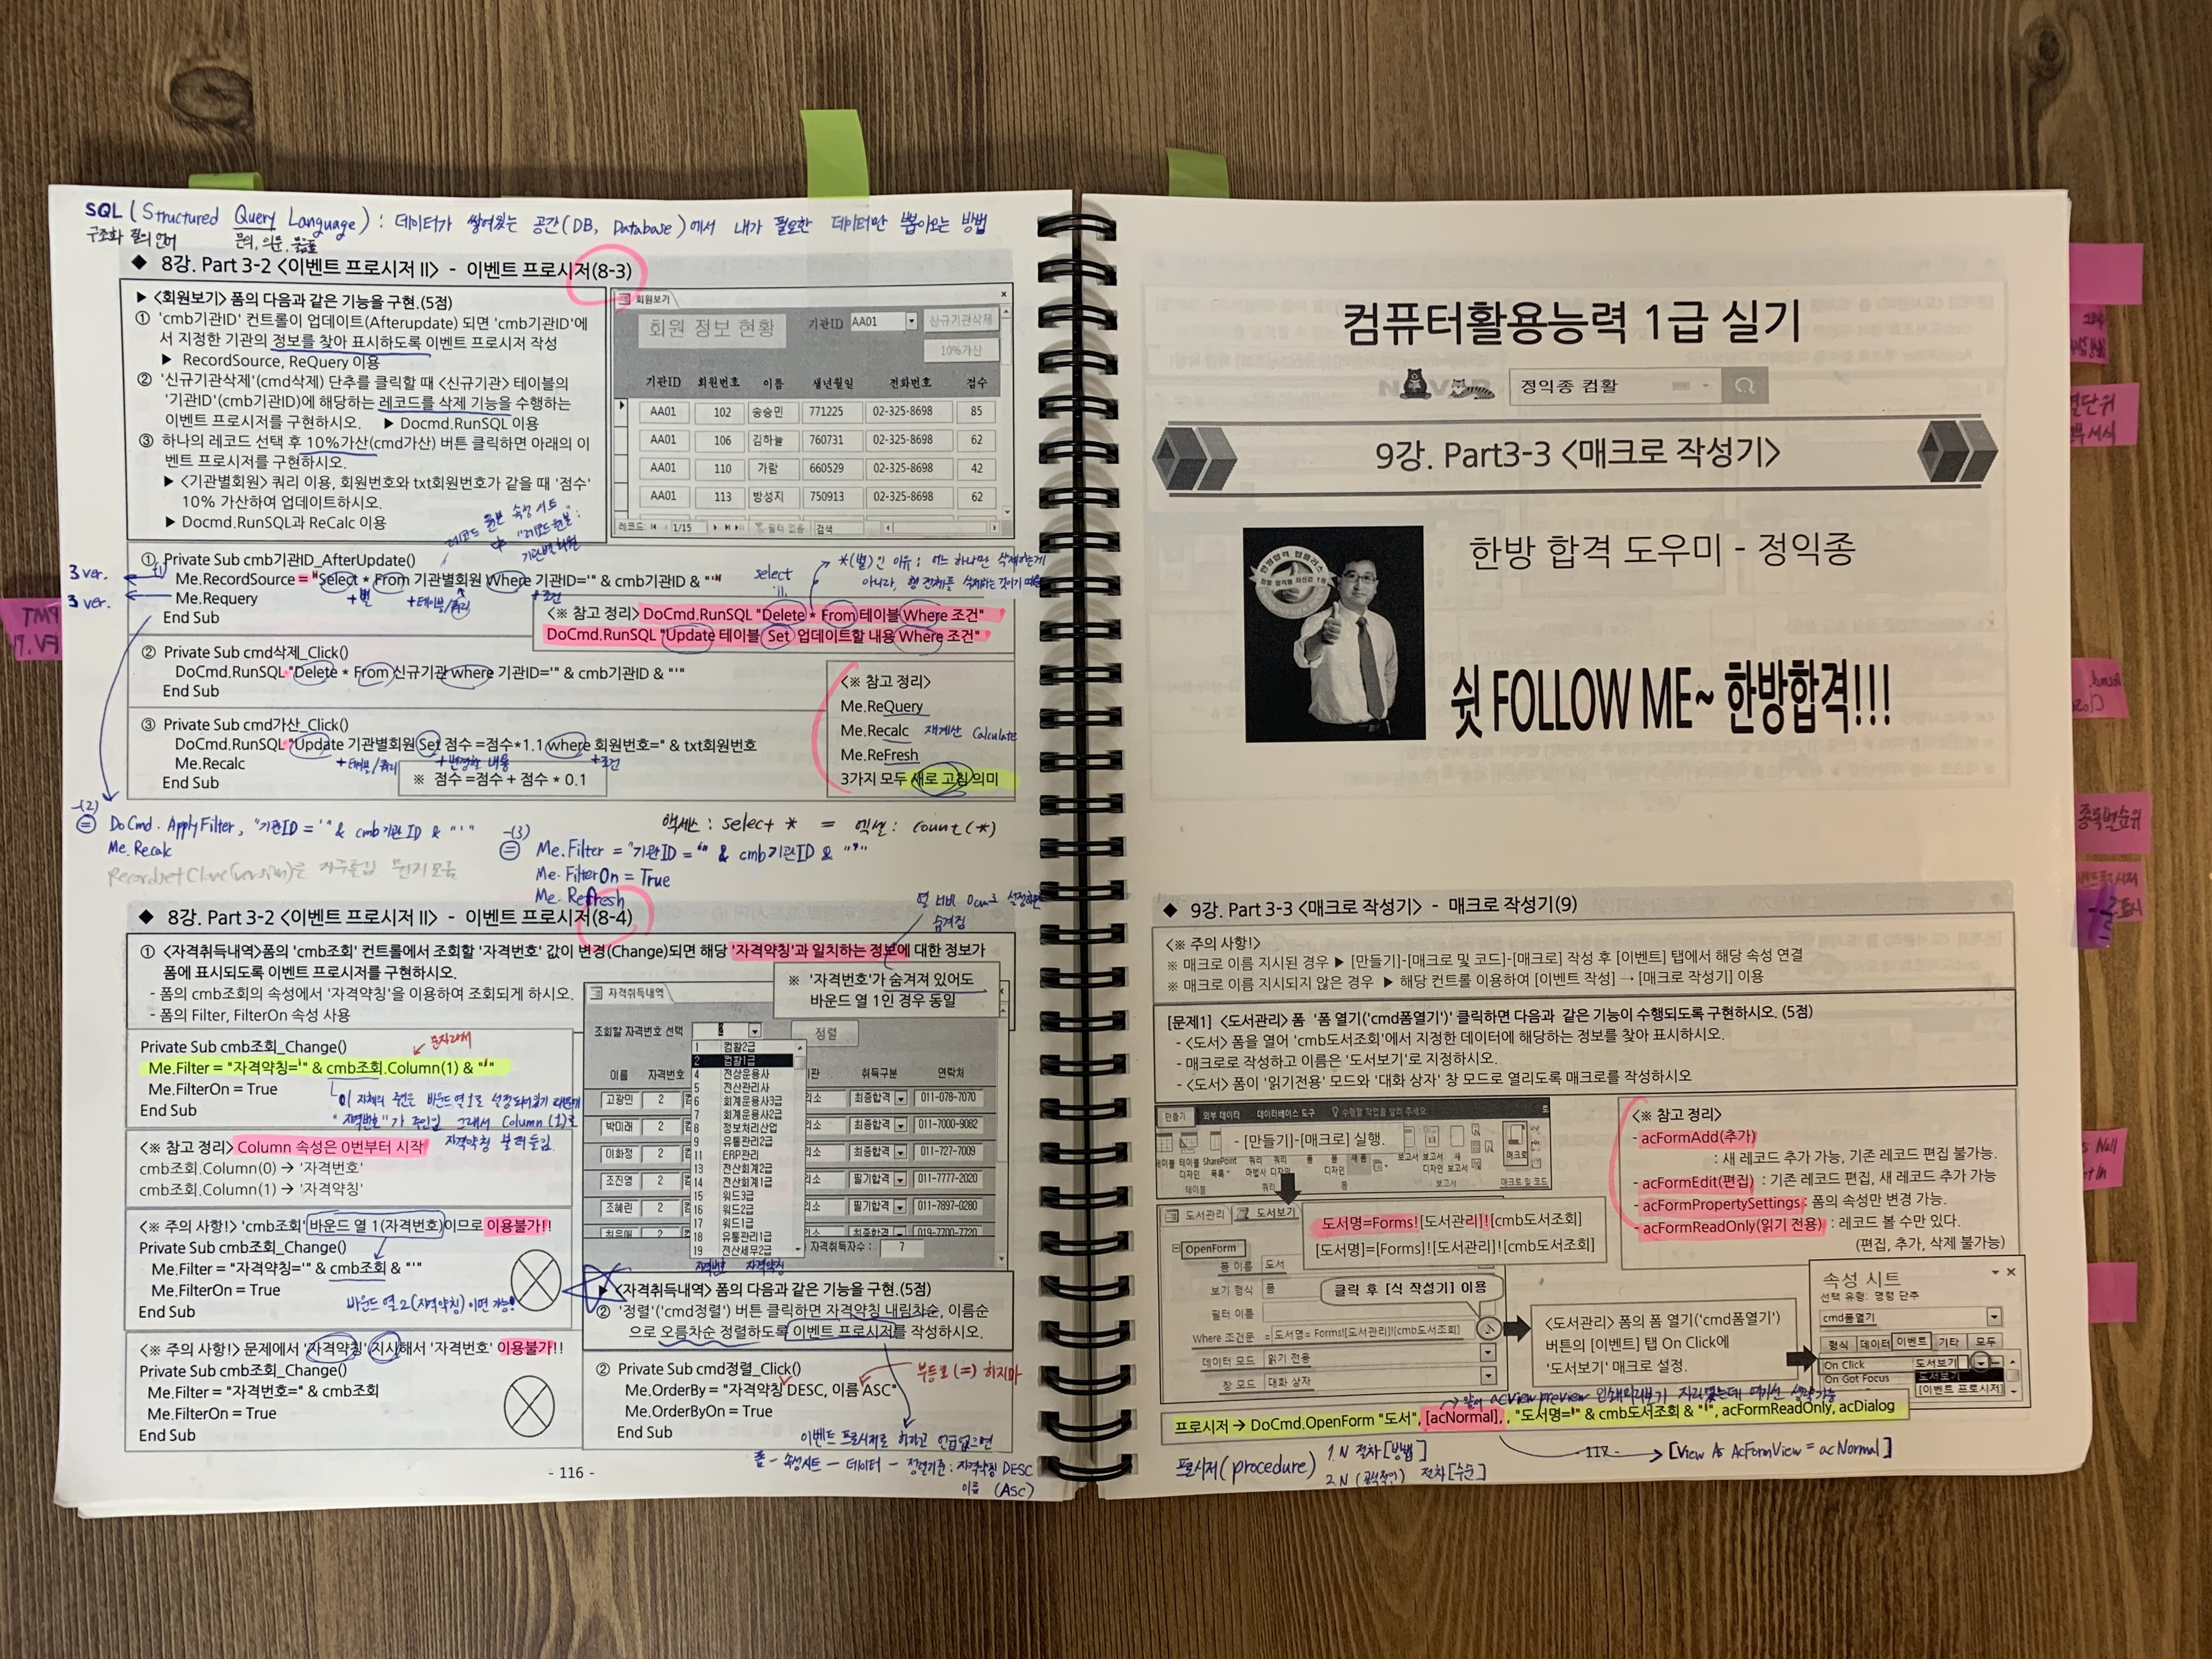 SQL (Structured Query Language) : 데이터가 쌓여있는 공간(DB, Database)에서 내가 필요한 데이터만 뽑아오는 방법
구조화 질의 언어 문의, 의문, 물음표
◆ 8강. Part 3-2 <이벤트 프로시저 II> - 이벤트 프로시저(8-3)
▶ <회원보기> 폼의 다음과 같은 기능을 구현.(5점)
① 'cmb기관ID' 컨트롤이 업데이트(Afterupdate) 되면 'cmb기관ID'에
서 지정한 기관의 정보를 찾아 표시하도록 이벤트 프로시저 작성
▶ RecordSource, ReQuery 이용
② '신규기관삭제'(cmd삭제) 단추를 클릭할 때 <신규기관> 테이블의
'기관ID'(cmb기관ID)에 해당하는 레코드를 삭제 기능을 수행하는
이벤트 프로시저를 구현하시오. ▶ Docmd.RunSQL 이용
③ 하나의 레코드 선택 후 10%가산(cmd가산) 버튼 클릭하면 아래의 이
벤트 프로시저를 구현하시오.
▶ <기관별회원> 쿼리 이용, 회원번호와 txt회원번호가 같을 때 '점수'
10% 가산하여 업데이트하시오.
▶ Docmd.RunSQL과 ReCalc 이용
회원보기
회원 정보 현황 기관ID AA01 신규기관삭제
10%가산
기관ID 회원번호 이름 생년월일 전화번호 점수
AA01 102 송승민 771225 02-325-8698 85
AA01 106 김하늘 760731 02-325-8698 62
AA01 110 가람 660529 02-325-8698 42
AA01 113 방성지 750913 02-325-8698 62
레코드: 1/15 필터 없음 검색
레코드 원본 속성 시트
"레코드 원본":
기관별회원
① Private Sub cmb기관ID_AfterUpdate()
3 ver. Me.RecordSource = "Select * From 기관별회원 Where 기관ID='" & cmb기관ID & "'"
3 ver. Me.Requery
+별 +테이블/쿼리 +조건
End Sub
select
*(별)인 이유 : 어느 하나만 삭제하는게
아니라, 행 전체를 삭제하는 것이기 때문
<※ 참고 정리> DoCmd.RunSQL "Delete * From 테이블 Where 조건"
DoCmd.RunSQL "Update 테이블 Set 업데이트할 내용 Where 조건"
② Private Sub cmd삭제_Click()
DoCmd.RunSQL "Delete * From 신규기관 where 기관ID='" & cmb기관ID & "'"
End Sub
③ Private Sub cmd가산_Click()
DoCmd.RunSQL "Update 기관별회원 Set 점수 =점수*1.1 where 회원번호=" & txt회원번호
Me.Recalc
+테이블/쿼리 +변경할 내용 +조건
End Sub
※ 점수 =점수 + 점수 * 0.1
<※ 참고 정리>
Me.ReQuery
Me.Recalc 재계산 Calculate
Me.ReFresh
3가지 모두 새로 고침 의미
-(2)
= DoCmd.ApplyFilter, "기관ID = '" & cmb기관ID & "'"
Me.Recalc
액세스 : select * = 엑셀 : count(*)
-(3)
= Me.Filter = "기관ID = '" & cmb기관ID & "'"
Me.FilterOn = True
Me.Refresh
열 너비 0cm로 설정하면
숨겨짐
◆ 8강. Part 3-2 <이벤트 프로시저 II> - 이벤트 프로시저(8-4)
① <자격취득내역>폼의 'cmb조회' 컨트롤에서 조회할 '자격번호' 값이 변경(Change)되면 해당 '자격약칭'과 일치하는 정보에 대한 정보가
폼에 표시되도록 이벤트 프로시저를 구현하시오.
- 폼의 cmb조회의 속성에서 '자격약칭'을 이용하여 조회되게 하시오.
- 폼의 Filter, FilterOn 속성 사용
※ '자격번호'가 숨겨져 있어도
바운드 열 1인 경우 동일
문자라서
Private Sub cmb조회_Change()
Me.Filter = "자격약칭='" & cmb조회.Column(1) & "'"
Me.FilterOn = True
End Sub
"자격번호"가 주인임 그래서 Column(1)로
자격약칭 불러들임.
<※ 참고 정리> Column 속성은 0번부터 시작
cmb조회.Column(0) → '자격번호'
cmb조회.Column(1) → '자격약칭'
<※ 주의 사항!> 'cmb조회' 바운드 열 1(자격번호)이므로 이용불가!!
Private Sub cmb조회_Change()
Me.Filter = "자격약칭='" & cmb조회 & "'"
Me.FilterOn = True
End Sub
바운드 열 2(자격약칭)이면 가능!
<※ 주의 사항!> 문제에서 '자격약칭' 지시해서 '자격번호' 이용불가!!
Private Sub cmb조회_Change()
Me.Filter = "자격번호=" & cmb조회
Me.FilterOn = True
End Sub
자격취득내역
조회할 자격번호 선택 2 정렬
1 컴활2급
2 컴활1급
4 전상운용사
5 전산관리사
6 회계운용사3급
7 회계운용사2급
8 정보처리산업
9 유통관리2급
11 ERP관리
13 전산회계2급
14 전산회계1급
15 워드3급
16 워드2급
17 워드1급
18 유통관리1급
19 전산세무2급
이름 자격번호 취득구분 연락처
고광민 2 최종합격 011-078-7070
박미래 2 최종합격 011-7000-9082
이화정 2 최종합격 011-727-7009
조진영 2 필기합격 011-7777-2020
조혜린 2 필기합격 011-7897-0280
최종합격 019-7700-7720
자격취득자수 : 7
자격번호 자격약칭
▶ <자격취득내역> 폼의 다음과 같은 기능을 구현.(5점)
② '정렬'('cmd정렬') 버튼 클릭하면 자격약칭 내림차순, 이름순
으로 오름차순 정렬하도록 이벤트 프로시저를 작성하시오.
② Private Sub cmd정렬_Click()
Me.OrderBy = "자격약칭 DESC, 이름 ASC"
Me.OrderByOn = True
End Sub
부등호(=) 하지마
이벤트 프로시저로 하라고 언급없으면
폼 - 속성시트 - 데이터 - 정렬기준 : 자격약칭 DESC
이름 (ASC)
- 116 -
컴퓨터활용능력 1급 실기
정익종 컴활
9강. Part3-3 <매크로 작성기>
한방 합격 도우미 - 정익종
쉿 FOLLOW ME~ 한방합격!!!
◆ 9강. Part 3-3 <매크로 작성기> - 매크로 작성기(9)
<※ 주의 사항!>
※ 매크로 이름 지시된 경우 ▶ [만들기]-[매크로 및 코드]-[매크로] 작성 후 [이벤트] 탭에서 해당 속성 연결
※ 매크로 이름 지시되지 않은 경우 ▶ 해당 컨트롤 이용하여 [이벤트 작성] → [매크로 작성기] 이용
[문제1] <도서관리> 폼 '폼 열기('cmd폼열기')' 클릭하면 다음과 같은 기능이 수행되도록 구현하시오. (5점)
- <도서> 폼을 열어 'cmb도서조회'에서 지정한 데이터에 해당하는 정보를 찾아 표시하시오.
- 매크로로 작성하고 이름은 '도서보기'로 지정하시오.
- <도서> 폼이 '읽기전용' 모드와 '대화 상자' 창 모드로 열리도록 매크로를 작성하시오
만들기 외부 데이터 데이터베이스 도구 수행할 작업을 알려 주세요.
- [만들기]-[매크로] 실행.
도서관리 도서보기
OpenForm
폼 이름 도서
보기 형식 폼
필터 이름
Where 조건문 = 도서명= Forms![도서관리]![cmb도서조회]
데이터 모드 읽기 전용
창 모드 대화 상자
도서명=Forms![도서관리]![cmb도서조회]
[도서명]=[Forms]![도서관리]![cmb도서조회]
클릭 후 [식 작성기] 이용
<도서관리> 폼의 폼 열기('cmd폼열기')
버튼의 [이벤트] 탭 On Click에
'도서보기' 매크로 설정.
<※ 참고 정리>
- acFormAdd(추가)
: 새 레코드 추가 가능, 기존 레코드 편집 불가능.
- acFormEdit(편집) : 기존 레코드 편집, 새 레코드 추가 가능
- acFormPropertySettings : 폼의 속성만 변경 가능.
- acFormReadOnly(읽기 전용) : 레코드 볼 수만 있다.
(편집, 추가, 삭제 불가능)
속성 시트
선택 유형: 명령 단추
cmd폼열기
형식 데이터 이벤트 기타 모두
On Click 도서보기
On Got Focus 도서보기
[이벤트 프로시저]
프로시저 → DoCmd.OpenForm "도서", [acNormal], , "도서명='" & cmb도서조회 & "'", acFormReadOnly, acDialog
프로시저(procedure) 1.N 절차[방법]
2.N (공식적인) 절차[수순]
- 117 -
[View As AcFormView = acNormal]
종목별순위